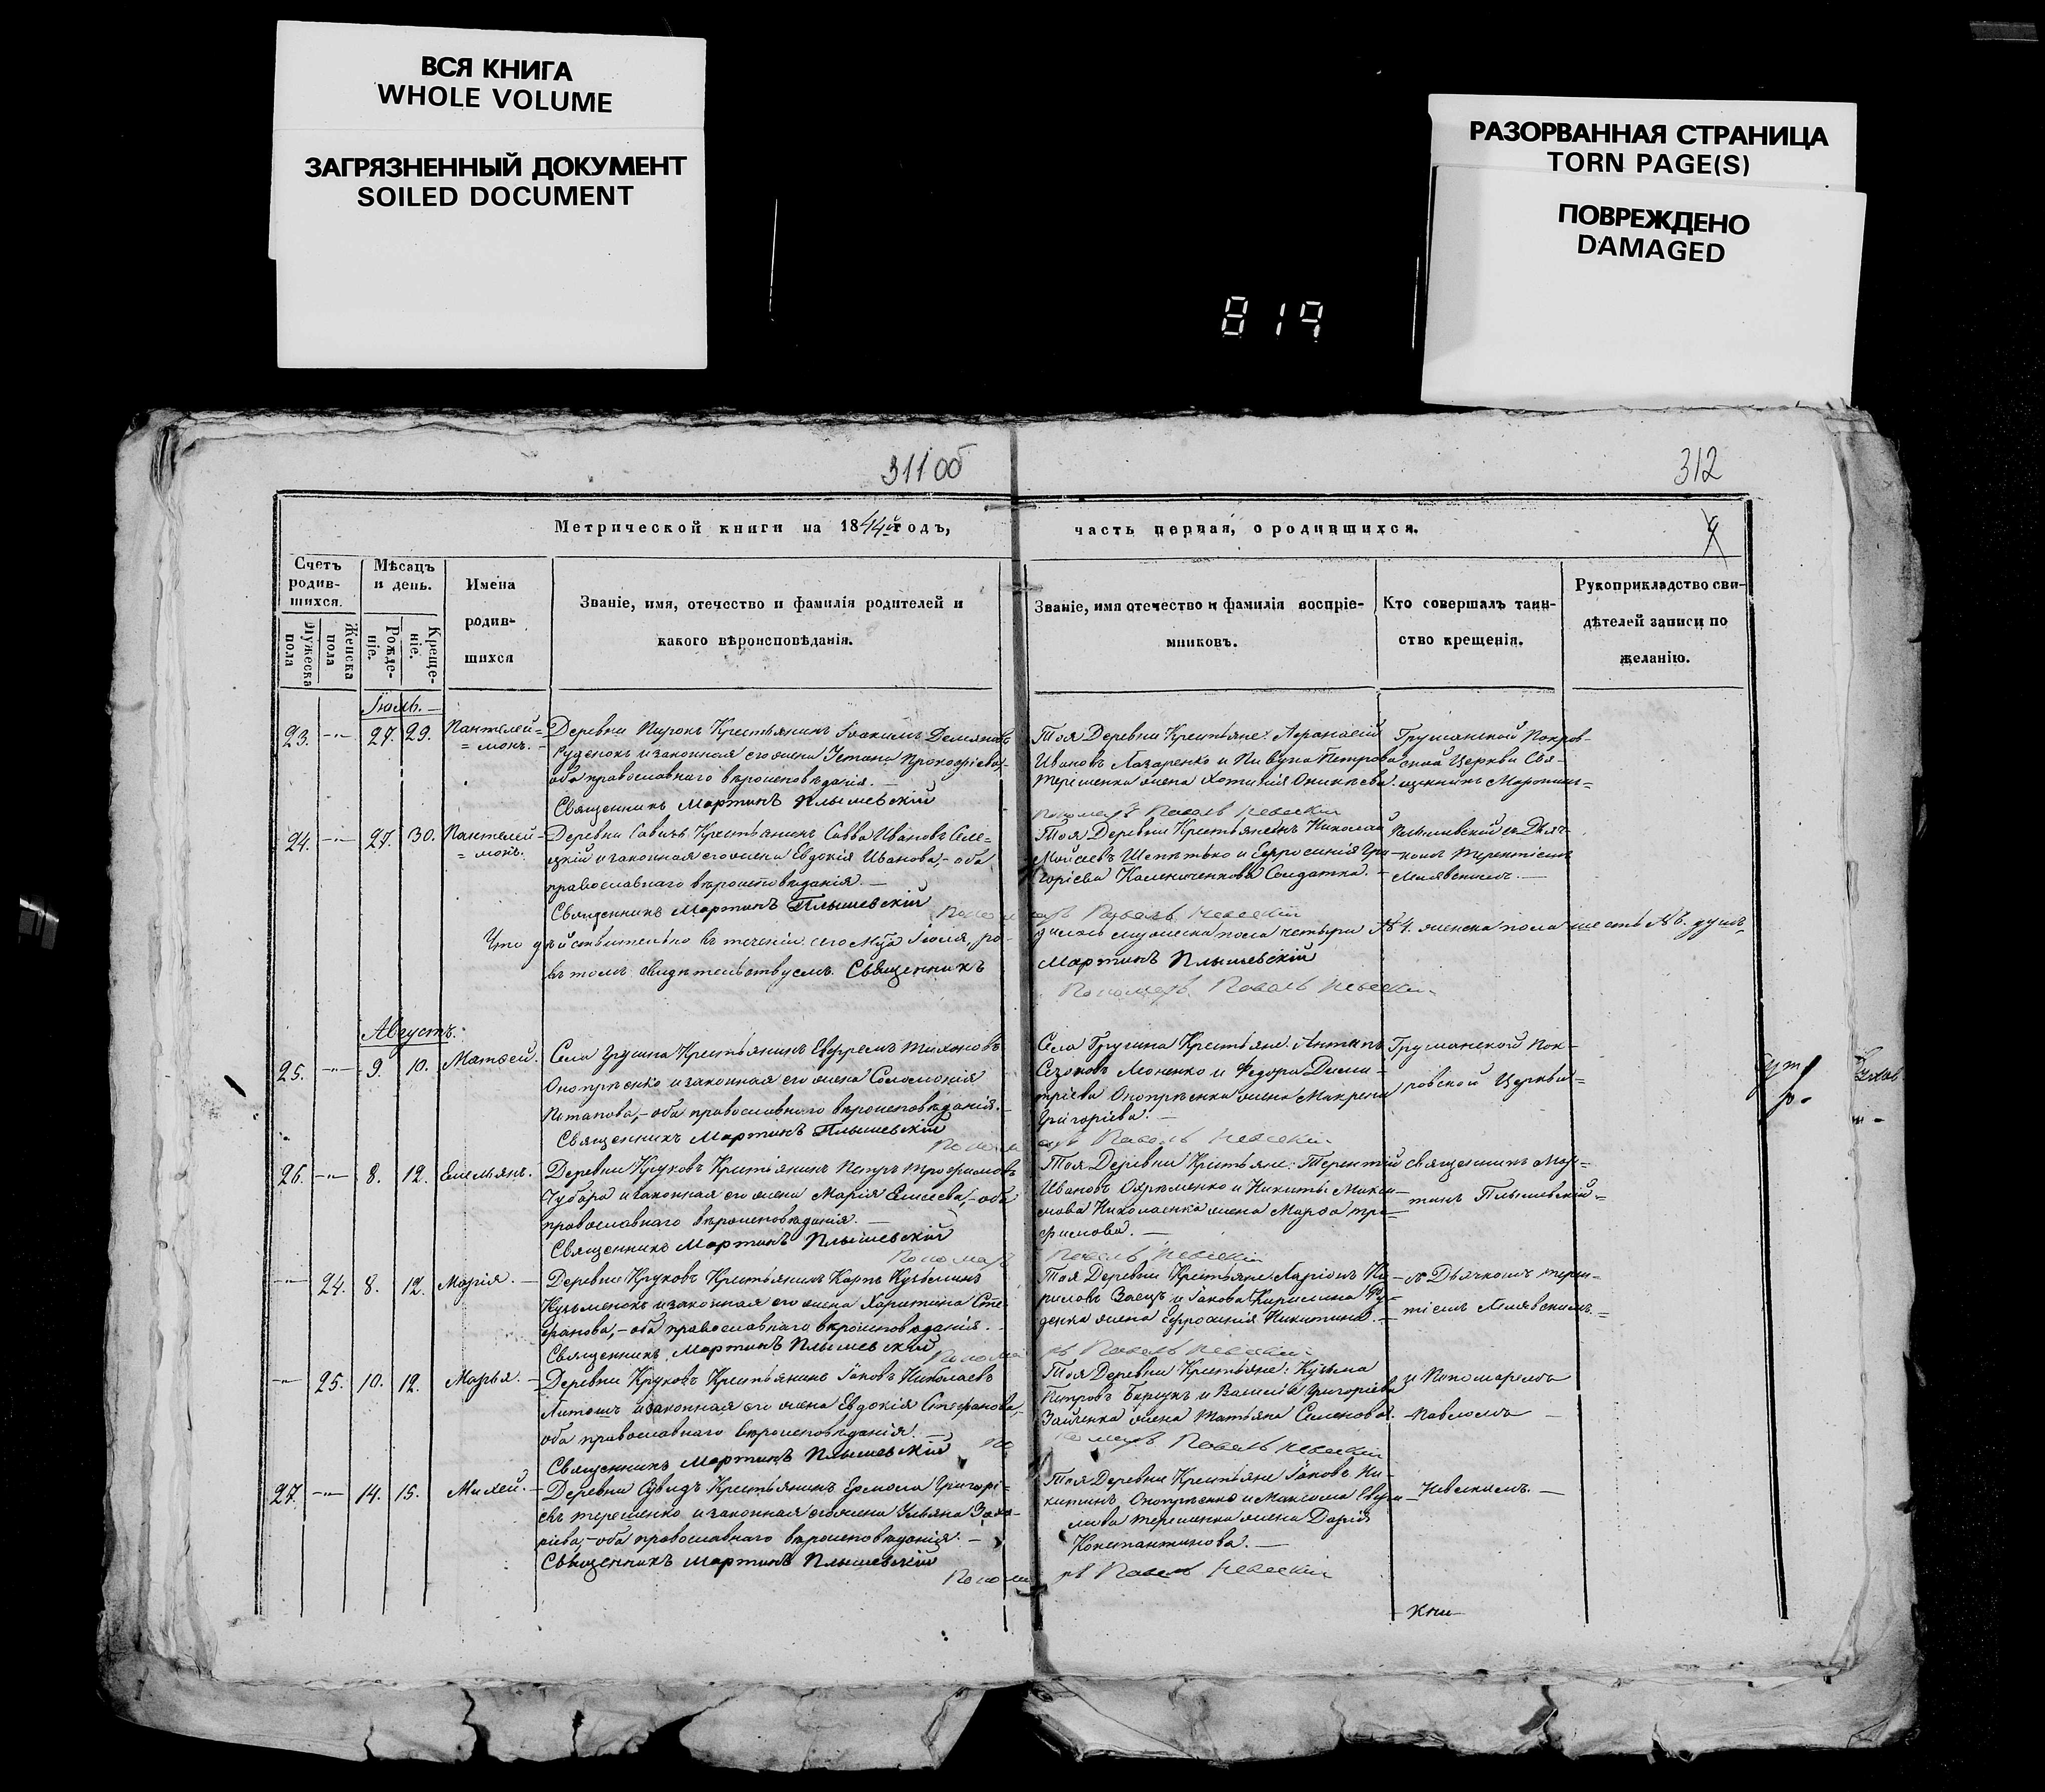 ВСЯ КНИГА
WHOLE VOLUME
ЗАГРЯЗНЕННЫЙ ДОКУМЕНТ
SOILED DOCUMENT
РАЗОРВАННАЯ СТРАНИЦА
TORN PAGE(S)
ПОВРЕЖДЕНО
DAMAGED
819
311 об
312
Метрической книги на 1844й годъ,
часть первая, о родившихся.
Счетъ родив-шихся.
Мужеска пола
Женска пола
Мѣсяцъ и день.
Рожде-ніе.
Креще-ніе.
Имена родив-шихся
Званіе, имя, отечество и фамилія родителей и
какого вѣроисповѣданія.
Званіе, имя отечество и фамилія воспріе-
мниковъ.
Кто совершалъ таин-
ство крещенія.
Рукоприкладство сви-
дѣтелей записи по
желанію.
Іюль.
23. -"- 27. 29. Пантелей=
=монъ.
Деревни Крестьянинъ Іоакимъ Демяновъ
Руденокъ и законная его жена Устина Прокофіева,-
оба православнаго вѣроисповѣданія.
Священникъ Мартинъ Плышевскій
Тоя Деревни Крестьяне: Афанасій
Ивановъ Лазаренко и Петрова
Терешенка жена Хотинія
Пономарь Павелъ Невскій
Грушанской Покров-
ской Церкви Свя-
щенникъ Мартинъ=
24. -"- 27. 30. Пантелей=
=монъ.
Деревни Крестьянинъ Савва Ивановъ Селе=
цкій и законная его жена Евдокія Иванова,- оба
православнаго вѣроисповѣданія.
Священникъ Мартинъ Плышевскій
Тоя Деревни Крестьянинъ Николай
Мойсеевъ и Ефросинія Гри-
горіева Солдатка.
Пономарь Павелъ Невскій
Плышевскій съ Дьяч-
комъ Терентіемъ
Что дѣйствительно въ теченіи сего Мца Іюля, ро-
дилось мужеска пола четыри №4. женска пола шесть №6. душъ,
въ томъ свидѣтельствуемъ Священникъ
Мартинъ Плышевскій
Пономарь Павелъ Невскій
Августъ.
25. -"- 9. 10. Матѳей.
Села Крестьянинъ Ефремъ Тихоновъ
Оноприенко и законная его жена Соломонія
Потапова,- оба православнаго вѣроисповѣданія.
Священникъ Мартинъ Плышевскій
Села Крестьяне: Антипъ
и Ѳедора Дими-
тріева Оноприенка жена Макрена
Григоріева.
Пономарь Павелъ Невскій
Грушанской Пок-
ровской Церкви=
26. -"- 8. 12. Емельянъ.
Деревни Круковъ Крестьянинъ Петръ Трофимовъ
Чубара и законная его жена Марія Елисеева,- оба
православнаго вѣроисповѣданія.
Священникъ Мартинъ Плышевскій
Тоя Деревни Крестьяне: Терентій
Ивановъ и Никиты Макси-
мова Николаенка жена Марѳа Тро-
фимова.
Пономарь Павелъ Невскій
священникъ Мар=
тинъ Плышевскій=
-"- 24. 8. 12. Марія.
Деревни Круковъ Крестьянинъ Карпъ Кузьминъ
Кузьменокъ и законная его жена Харитина Сте-
фанова,- оба православнаго вѣроисповѣданія.
Священникъ Мартинъ Плышевскій
Тоя Деревни Крестьяне: Ларіонъ Ки-
риловъ Заецъ и Іакова Кирилина
жена Ефросинія Никитина.
Пономарь Павелъ Невскій
съ Дьячкомъ Терен=
тіемъ
-"- 25. 10. 12. Марья.
Деревни Круковъ Крестьянинъ Іаковъ Николаевъ
и законная его жена Евдокія Стефанова,-
оба православнаго вѣроисповѣданія.
Священникъ Мартинъ Плышевскій
Тоя Деревни Крестьяне: Кузьма
Петровъ и Василія Григоріева
Зайченка жена Татьяна Семенова.
Пономарь Павелъ Невскій
и Пономаремъ
Павломъ
27. -"- 14. 15. Михей.
Деревни Сувидъ Крестьянинъ Ермола Григорі-
евъ Терешенко и законная его жена Ульяна Заха-
ріева,- оба православнаго вѣроисповѣданія.
Священникъ Мартинъ Плышевскій
Тоя Деревни Крестьяне Іаковъ Ни-
китинъ Оноприенко и Максима
Терешенка жена Дарія
Константинова.
Пономарь Павелъ Невскій
Невскимъ.
Кни-